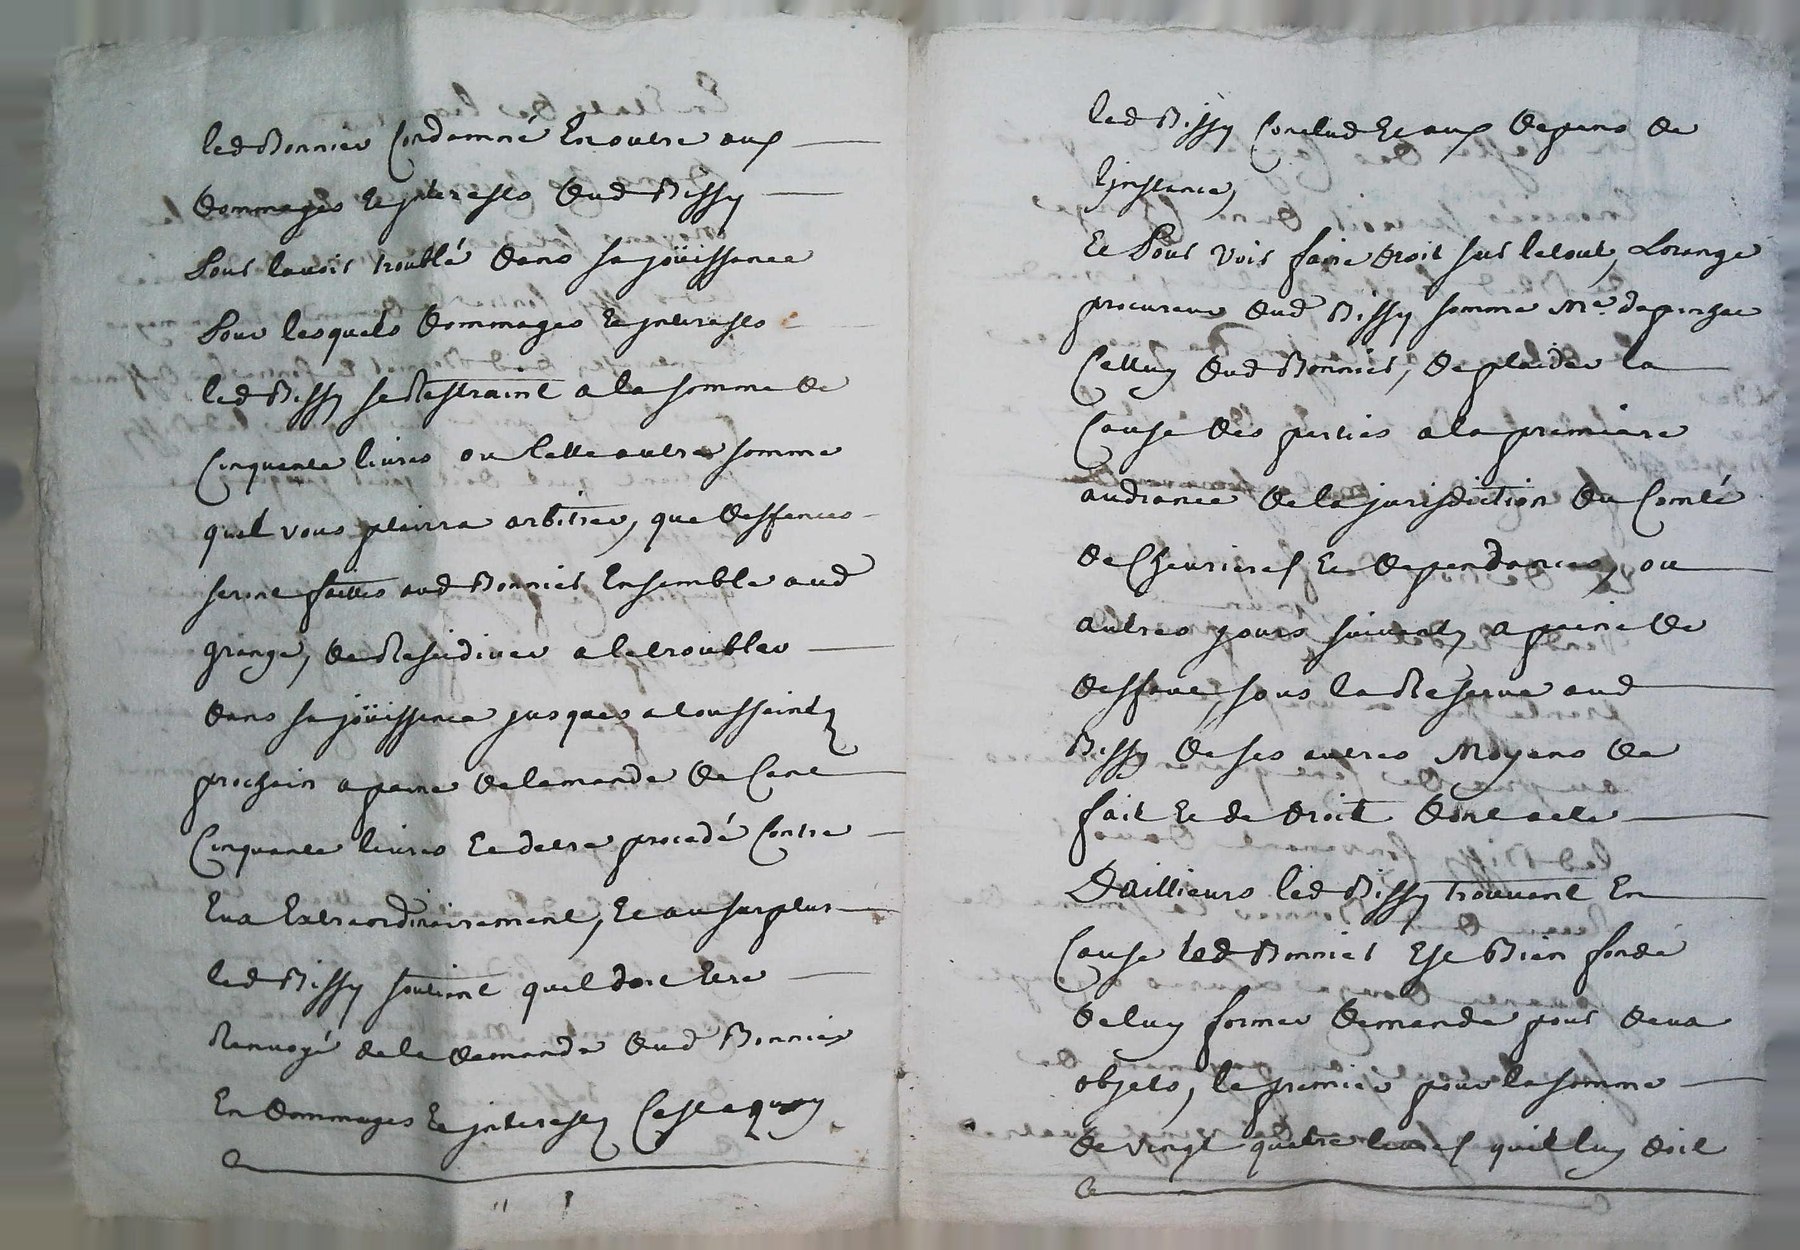 led Bonnier Condamné En outre aux
dommages Et jnterests dud Bissy
Pour lavoir troublé dans sa joüissance
Pour lesquels dommages Et jnterests
led Bissy se Restraint a la somme de
Cinquante livres ou telle autre somme
quil vous plairra arbitrer, que deffences
seront faittes aud Bonnier Ensemble aud
grange, de Residiver a le troubler
dans sa joüissance jusques a toussaints
prochain a peine de lamande de Cent
Cinquante livres Et detre procedé Contre
Eux Extraordinairement, Et au surplus
led Bissy soutient quil doit Etre
Renvoyé de la demande dud Bonnier
En dommages Et jnterests Cest a quoy
led Bissy Conclud Et aux depens de
Ljnstance,
Et Pour Voir faire droit sur le tout, Lorange
procureur dud Bissy somme Me. depinzac
Celluy dud Bonnier, de plaider la
Cause des parties a la premiere
audiance de la jurisdiction du Comté
de Chevrieres Et dependances, ou
autres jours suivants, a peine de
deffaut, sous la Reserve aud
Bissy de ses autres Moyens de
fait Et de droit dont acte
D'aillieurs led Bissy trouvant En
Cause led Bonnier Est Bien fondé
de luy former demande pour deux
objets, le premier pour la somme
de vingt quatre livres quil luy doit